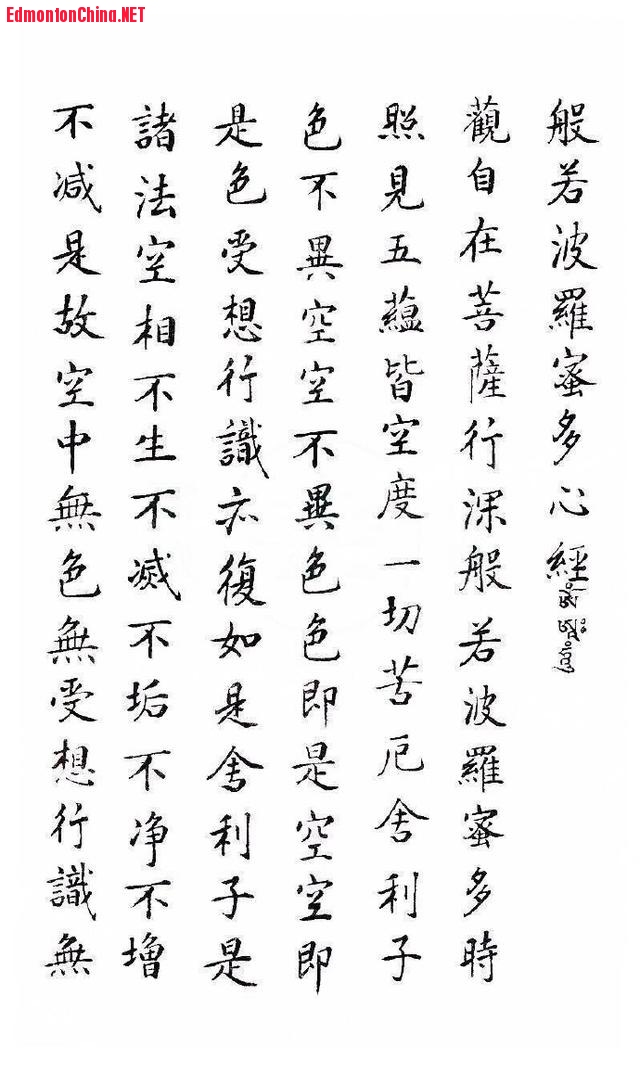 EdmontonChina.NET
般若波羅蜜多心經
觀自在菩薩行深般若波羅蜜多時
照見五蘊皆空度一切苦厄舍利子
色不異空空不異色色即是空空即
是色受想行識亦復如是舍利子是
諸法空相不生不滅不垢不净不增
不减是故空中無色無受想行識無